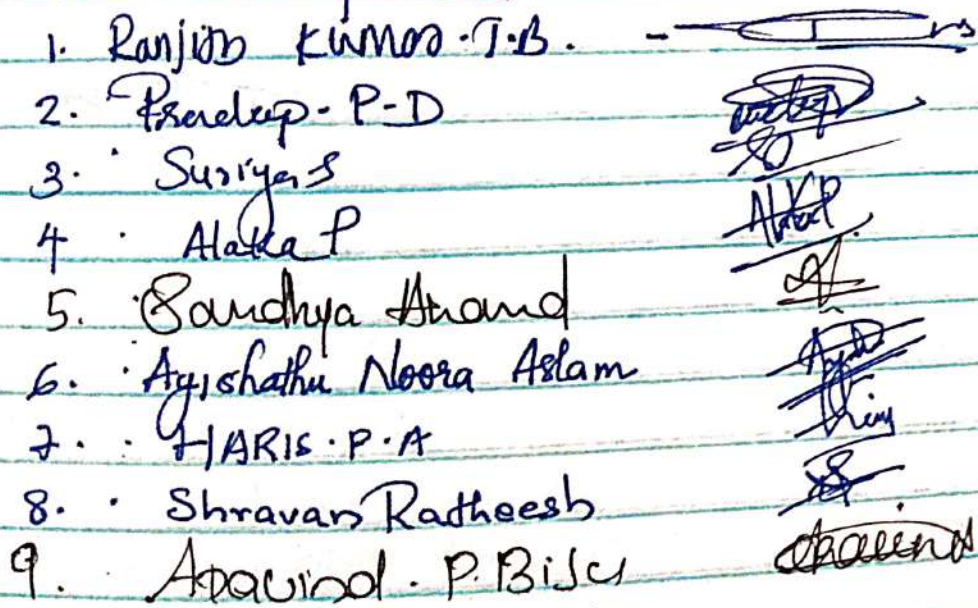 1. Ranjith Kumar.T.B.
2. Pradeep-P-D
3. Suriya S
4. Alaka P
5. Sandhya Anand
6. Ayishathu Noora Aslam
7. HARIS.P.A
8. Shravan Ratheesh
9. Aravind.P.Biju